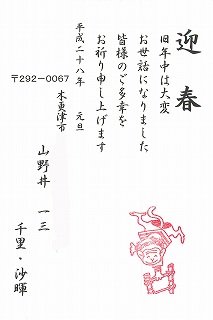 迎春
旧年中は大変
お世話になりました
皆様のご多幸を
お祈り申し上げます
平成二十八年　元旦
〒292－0067
木更津市
山野井　一三
千里・沙暉